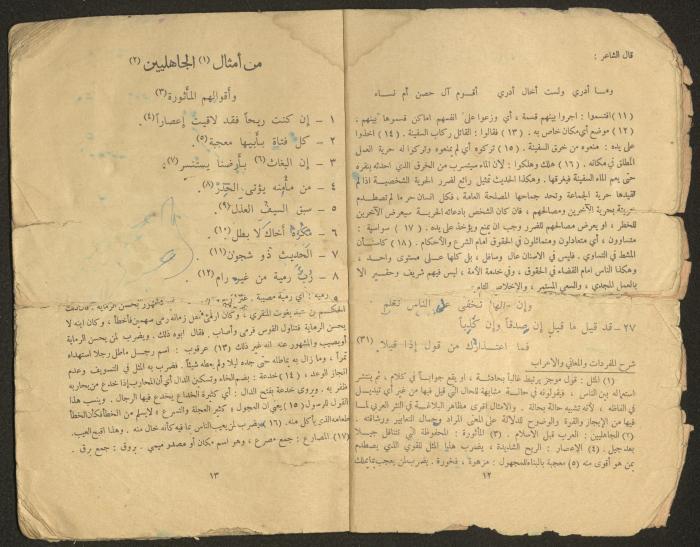 قال الشاعر :
وما أدري ولست أخال أدري أقوم آل حصن أم نساء
(١١) اقتسموا : اجروا بينهم قسمة ، أي وزعوا على انفسهم اماكن قسموها بينهم .
(١٢) موضع أي مكان خاص به . (١٣) فقالوا : القائل ركاب السفينة . (١٤) اخذوا
على يده : منعوه من خرق السفينة . (١٥) تركوه أي لم يمنعوه وتركوا له حرية العمل
المطلق في مكانه . (١٦) هلك وهلكوا : لان الماء سيتسرب من الخرق الذي احدثه بنقره
حتى يعم الماء السفينة فيغرقها . وهكذا الحديث تمثيل رائع لضرر الحرية الشخصية اذا لم
تقيدها حرية الجماعة وتحد جماحها المصلحة العامة ، فكل انسان حر ما لم تصطدم
حريته بحرية الآخرين ومصالحهم ، فان كان الشخص بادعائه الحرية سيعرض الآخرين
للخطر ، او يعرض مصالحهم للضرر وجب ان يمنع ويؤخذ على يده . (١٧) سواسية :
متساوون ، أي متعادلون ومتماثلون في الحقوق امام الشرع والأحكام . (١٨) كأسنان
المشط في التساوي . فليس في الاسنان عال وسافل ، بل كلها على مستوى واحد ،
وهكذا الناس امام القضاء في الحقوق ، وفي خدمة الأمة ، ليس فيهم شريف وحقير الا
بالعمل المجدي ، والسعي المستمر ، والاخلاص التام .
وإن تخفى على الناس تعلم
٢٧- قد قيل ما قيل إن صدقاً وإن كذباً
فما اعتذارك من قول إذا قيلا (٣١)
شرح المفردات والمعاني والاعراب
(١) المثل : قول موجز يرتبط غالباً بحادثة ، او يقع جواباً في كلام ، ثم ينتشر
استعماله بين الناس ، فيقولونه في حالة مشابهة للحال التي قيل فيها من غير أي تبديل
في الفاظه ، لأنه تشبيه حالة بحالة . والامثال اقوى مظاهر البلاغة في النثر العربي لما
فيها من الإيجاز والقوة والوضوح للدلالة على المعنى المراد وجمال التعابير ورشاقته .
(٢) الجاهليين : العرب قبل الاسلام . (٣) المأثورة : المحفوظة التي تتناقل جيلاً
بعد جيل . (٤) الاعصار : الريح الشديدة ، يضرب هذا المثل للقوي الذي يصطدم
بمن هو أقوى منه (٥) معجبة بالبناء للمجهول : مزهوة ، فخورة . يضرب لمن يعجب بما يملك
١٢
من أمثال (١) الجاهليين (٢)
وأقوالهم المأثورة (٣)
١ – إن كنت ريحاً فقد لاقيت إعصاراً (٤).
٢ – كل فتاة بأبيها معجبة (٥).
٣ – إن البغاث (٦) بأرضنا يستنسر (٧).
٤ – من مأمنه يؤتى الحذر (٨).
٥ – سبق السيف العذل (٩).
٦ – مكره أخاك لا بطل (١٠).
٧ – الحديث ذو شجون (١١).
٨ – رب رمية من غير رام (١٢).
رمية : اي رمية مصيبة .
الحكم بن عبد يغوث المنقري ، وكان ارمى أهل زمانه رمى سهمين فأخطأ ، وكان ابنه لا
يحسن الرماية فتناول القوس فرمى وأصاب . فقال ابوه ذلك . ويضرب لمن يحسن الرماية
أو يصيب والمشهور عنه انه غير ذلك (١٣) عرقوب : اسم رجل ماطل رجلا استهداه
تمراً ، وما زال به يماطله حتى جده ليلا ولم يعطه شيئاً . فضرب به المثل في التسويف وعدم
انجاز الوعد ، (١٤) خدعة : بضم الخاء وتسكين الدال أي أن المحارب إذا خدع من يحاربه
ظفر به . ويروى خدعة بفتح الدال : أي كثيرة الخداع يخدع فيها الرجال . وينسب هذا
القول للرسول (١٥) يعني ان العجول ، كثير العجلة والتسرع ، لا يسلم من الخطأ
طعامه الذي يأكل منه . (١٦) يضرب لمن يعيب الناس بما فيه كأنه خال منه . وهذا اقبح العيب .
(١٧) المصارع : جمع مصرع ، وهو اسم مكان أو مصدر ميمي . بروق : جمع برق .
١٣